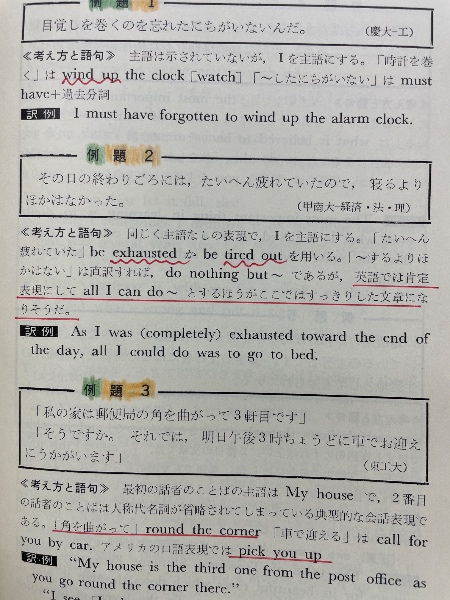 例 題 1
目覚しを巻くのを忘れたにちがいないんだ。
(慶大—工)
≪考え方と語句≫ 主語は示されていないが，Iを主語にする。「時計を巻
く」は wind up the clock [watch]「〜したにちがいない」は must
have+過去分詞
訳 例 I must have forgotten to wind up the alarm clock.
例 題 2
その日の終わりごろには，たいへん疲れていたので，寝るより
ほかはなかった。
(甲南大—経済・法・理)
≪考え方と語句≫ 同じく主語なしの表現で，Iを主語にする。「たいへん
疲れていた」be exhausted か be tired out を用いる。「〜するよりほ
かはない」は直訳すれば，do nothing but〜 であるが，英語では肯定
表現にして all I can do〜 とするほうがここではすっきりした文章にな
りそうだ。
訳 例 As I was (completely) exhausted toward the end of
the day, all I could do was to go to bed.
例 題 3
「私の家は郵便局の角を曲がって3軒目です」
「そうですか。それでは，明日午後3時ちょうどに車でお迎え
にうかがいます」
(東工大)
≪考え方と語句≫ 最初の話者のことばの主語は My house で，2番目
の話者のことばは人称代名詞が省略されてしまっている典型的な会話表現で
ある。「角を曲がって」round the corner 「車で迎える」は call for
you by car. アメリカの口語表現では pick you up
訳 例 “My house is the third one from the post office as
you go round the corner there.”